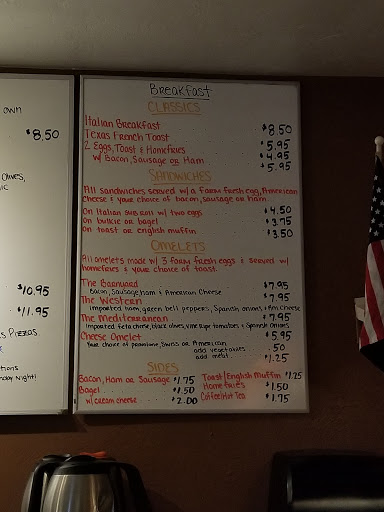 own
$8.50
Olives,
$10.95
$11.95
s Pizzas.
Breakfast
CLASSICS
Italian Breakfast $8.50
Texas French Toast $5.95
2 Eggs, Toast & Homefries $4.95
w/ Bacon, Sausage or Ham $5.95
SANDWICHES
All sandwiches served w/ a farm fresh egg, American
cheese & your choice of bacon, sausage or ham.
On Italian sub roll w/ two eggs $4.50
On bulkie or bagel $3.75
On toast or english muffin $3.50
OMELETS
All omelets made w/ 3 farm fresh eggs & served w/
homefries & your choice of toast.
The Barnyard $7.95
Bacon, Sausage, ham & American Cheese
The Western $7.95
Imported ham, green bell peppers, Spanish onions & Am Cheese
The Mediterranean $7.95
Imported feta cheese, black olives, vine ripe tomatoes & Spanish Onions
Cheese Omelet $5.95
Your choice of provolone, Swiss or American
add vegetables .50
add meat $1.25
SIDES
Bacon, Ham or Sausage $1.75 Toast/English Muffin $1.25
Bagel $1.50 Homefries $1.50
w/ cream cheese $2.00 Coffee/Hot Tea $1.75